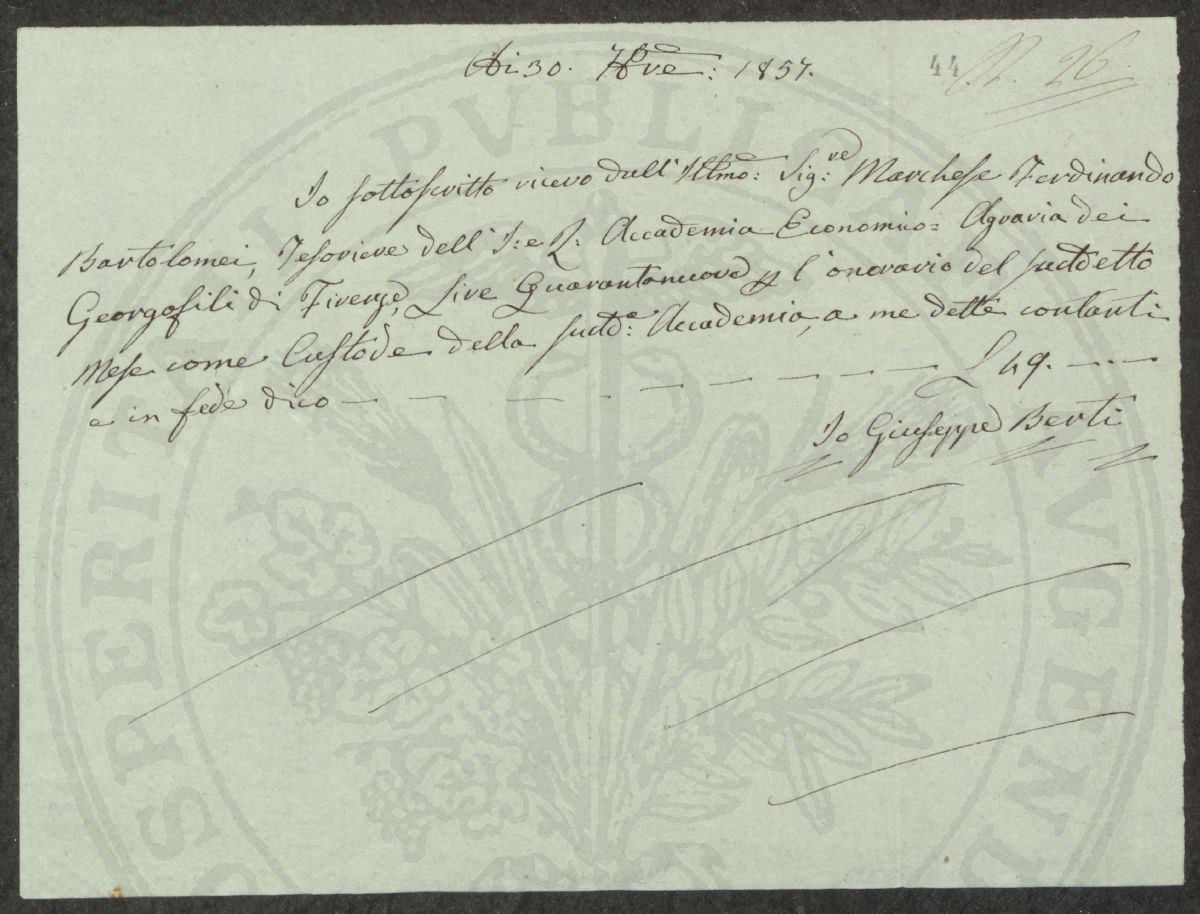 Adi 30. 7bre: 1857.
44
N. 26
Io sottoscritto ricevo dall' Illmo: Sig:re Marchese Ferdinando
Bartolomei, Tesoriere dell' I: e R: Accademia Economico= Agraria dei
Georgofili di Firenze, Lire Quarantanuove p l' onorario del suddetto
Mese come Custode della sudd:a Accademia, a me dette contanti
e in fede dico — — — — — — — — — — £ 49. —.—
Io Giuseppe Berti
PROSPERITATI PVBLICAE AVGENDAE